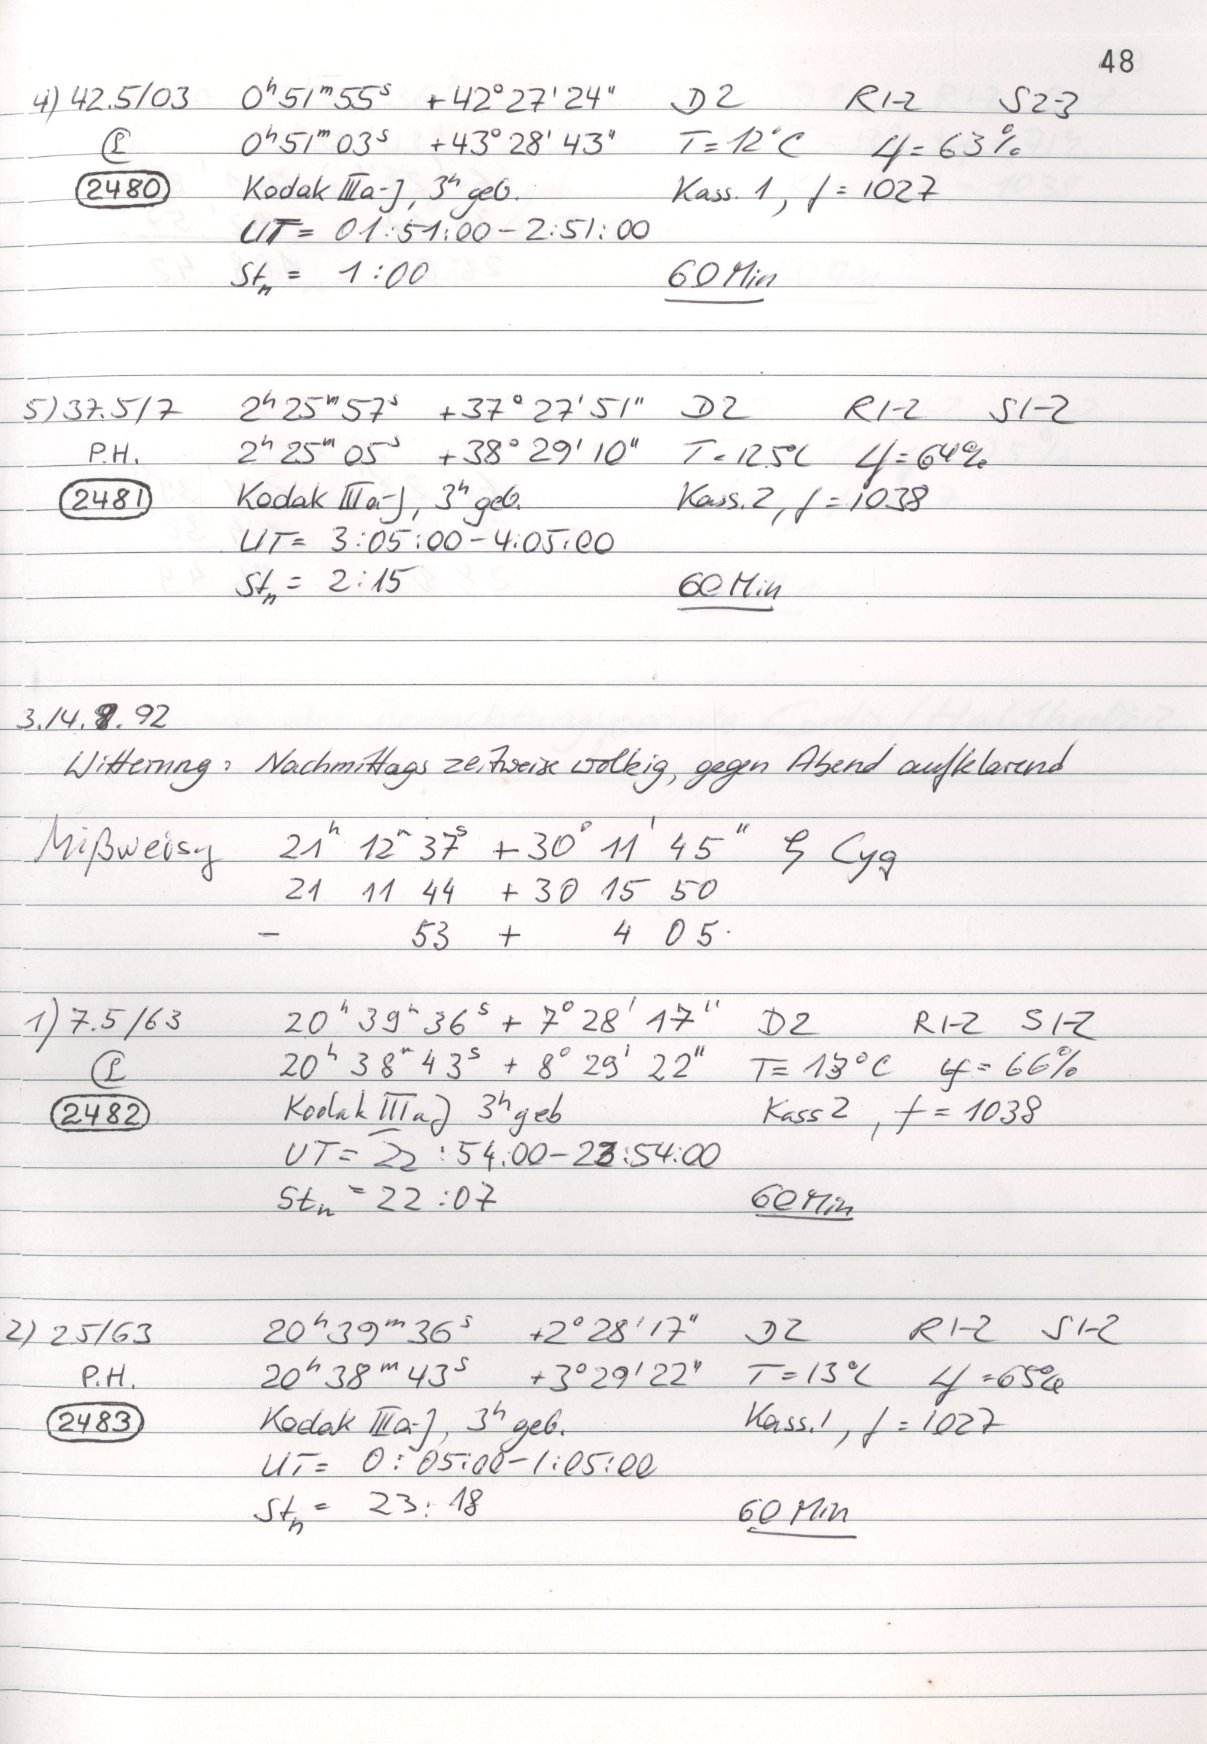 48
4) 42.5/03 0ʰ51ᵐ55ˢ +42°27'24" D2 R1-2 S2-3
0ʰ51ᵐ03ˢ +43°28'43" T=12°C φ=63%
2480 Kodak IIIa-J, 3ʰ geb. Kass. 1, f=1027
UT= 01:51:00-2:51:00
Stₙ= 1:00 60 Min
5) 37.5/7 2ʰ25ᵐ57ˢ +37°27'51" D2 R1-2 S1-2
P.H. 2ʰ25ᵐ05ˢ +38°29'10" T=12.5°C φ=64%
2481 Kodak IIIa-J, 3ʰ geb. Kass. 2, f=1038
UT= 3:05:00-4:05:00
Stₙ= 2:15 60 Min
3./4. 8. 92
Witterung: Nachmittags zeitweise wolkig, gegen Abend aufklarend
Mißweisg 21ʰ 12ᵐ 37ˢ +30° 11' 45" ζ Cyg
21 11 44 +30 15 50
- 53 + 4 05.
1) 7.5/63 20ʰ39ᵐ36ˢ +7°28'17" D2 R1-2 S1-2
20ʰ38ᵐ43ˢ +8°29'22" T=13°C φ=66%
2482 Kodak IIIaJ 3ʰ geb Kass 2, f=1038
UT= 22:54:00-23:54:00
Stₙ=22:07 60 Min
2) 2.5/63 20ʰ39ᵐ36ˢ +2°28'17" D2 R1-2 S1-2
P.H. 20ʰ38ᵐ43ˢ +3°29'22" T=13°C φ=65%
2483 Kodak IIIa-J, 3ʰ geb. Kass. 1, f=1027
UT= 0:05:00-1:05:00
Stₙ= 23:18 60 Min